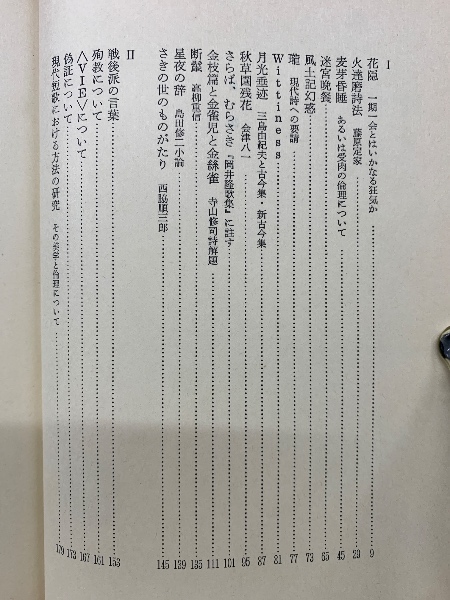 I
花隠 一期一会とはいかなる狂気か 9
火達磨詩法 藤原定家 29
麦芽昏睡 あるいは受肉の倫理について 45
迷宮晩餐 65
風土記幻惑 73
瓏 現代詩への要請 77
Wittiness 81
月光垂迹 三島由紀夫と古今集・新古今集 87
秋草国残花 会津八一 95
さらば、むらさき 『岡井隆歌集』に註す 101
金枝篇と金雀児と金絲雀 寺山修司詩解題 111
断鬣 高柳重信 135
星夜の辞 島田修二小論 139
さきの世のものがたり 西脇順三郎 145
II
戦後派の言葉 153
殉教について 161
〈VIE〉について 167
偽証について 173
現代短歌における方法の研究 その美学と倫理について 179